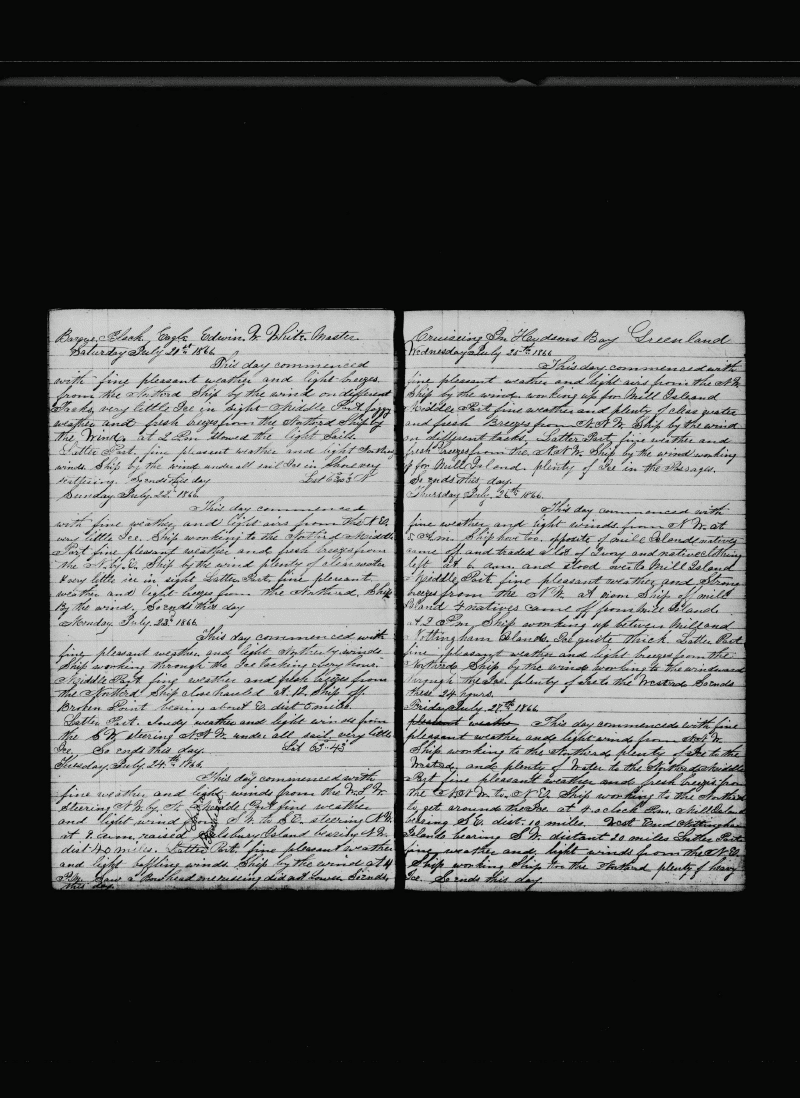 Barque Black Eagle Edwin. W. White Master
Saturday July 21st 1866
This day commenced
with fine pleasant weather and light breezes
from the Northerd Ship by the wind on different
Tacks, very little Ice in sight Middle Part foggy
weather and fresh breezes from the Northerd Ship by
the Wind, at 2 Pm stowed the light Sails.
Latter Part. fine pleasant weather and light Northerly
winds Ship by the wind under all sail Ice in Shore very
scattering. So ends this day Lat 63
Sunday July 22d 1866
This day commenced
with fine weather, and light airs from the N E.
very little Ice. Ship working to the Northerd Middle
Part fine pleasant weather and fresh breezes from
the N. by E. Ship by the wind plenty of clear water
& very little ice in sight Latter Part, fine pleasant
weather and light breezes from the Northerd, Ship
By the wind. So ends this day
Monday July. 23d 1866
This day commenced with
fine pleasant weather, and light Northerly winds
Ship working through the Ice tacking every hour.
Middle Part fine weather and fresh breezes from
the Northerd Ship close hauled at 12. Ship off
Broken Point bearing about E dist 5 miles.
Latter Part. weather and light winds from
the S W, steering N.N.W. under all sail very little
Ice, So ends this day. Lat 63-43
Tuesday July. 24th 1866
This day commenced with
fine weather, and light winds from the W.S.W.
steering N.W. by N. Middle Part fine weather
and light wind from S W. to S E. steering N.W.
at 9 a.m. raised Salisbury Island bearing N W
dist 40 miles. Latter Part fine pleasant weather
and light baffling winds Ship by the wind at 4
P.M. Saw a Bowhead did not Lower So ends
this day.
Cruiseing In Hudsons Bay Greenland
Wednesday July 25th 1866
This day commenced with
fine pleasant weather and light airs from the N W.
Ship by the wind working up for Mill Island
Middle Part fine weather and plenty of clear water
and fresh Breezes from N.N.W. Ship by the wind
on different tacks, Latter Part, fine weather and
fresh breezes from the N.N.W. Ship by the wind working
up for Mill Island. plenty of Ice in the Passages.
So ends this day.
Thursday July. 26th 1866.
This day commenced with
fine weather and light winds from N W. at
5 A.m. Ship hove too opposite of mill Island natives
came of and traded a lot of Ivory and native clothing
left at 6 am and stood over to Mill Island
Middle Part fine pleasant weather, and strong
breezes from the N W. A Ship of mill
Island 4 natives came off from Mill Island
At 2 Pm, Ship working up between Mill and
Nottingham Islands. Ice quite thick. Latter Part
fine pleasant weather and light breezes from the
Northerd Ship by the wind working to the windward
through the Ice. plenty of Ice to the Westerd So ends
these 24 hours.
Friday July. 27th 1866
pleasant weather This day commenced with fine
pleasant weather and light wind from N.N.W.
Ship working to the Northerd plenty of Ice to the
Westerd, and plenty of Water to the Northerd Middle
Part fine pleasant weather and fresh breezes from
the N.N.W. to N.E. Ship working to the Northerd
to get around the Ice. at 4 o clock Pm. Mill Island
bearing S E. dist. 10 miles. West End Nottingham
Islands bearing S W. distant 20 miles Latter Part
fine weather and light winds from the N E.
Ship working Ship to the Northerd plenty of heavy
Ice. So ends this day